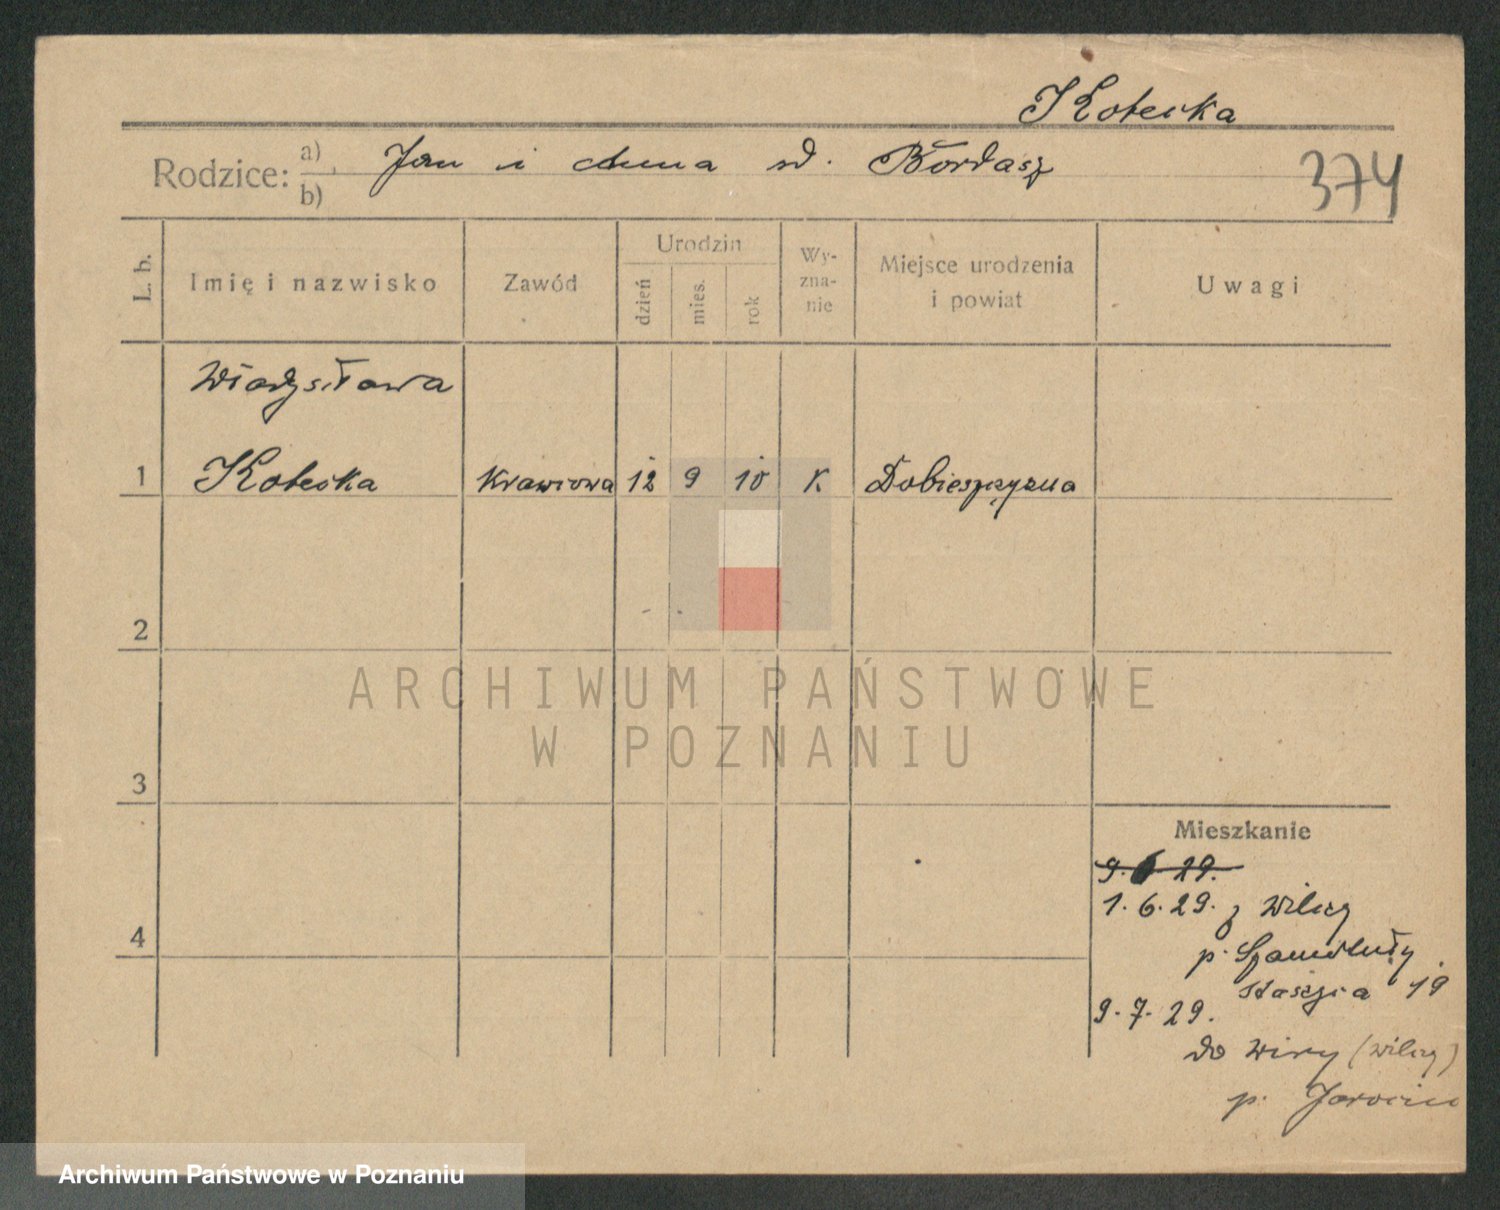 Kotecka
Rodzice: a) Jan i Anna zd. Bordasz
b)
374
L. b.
Imię i nazwisko
Zawód
Urodzin
dzień
mies.
rok
Wy-
zna-
nie
Miejsce urodzenia
i powiat
Uwagi
Władysława
1 Kotecka Krawcowa 12 9 10 K Dobieszczyzna
2
ARCHIWUM PAŃSTWOWE
W POZNANIU
3
Mieszkanie
1.6.29. z Wilczy
4
p. Szamotuły
Staszica 19
9.7.29.
do Wiry (Wilczy)
p. Jarocin
Archiwum Państwowe w Poznaniu